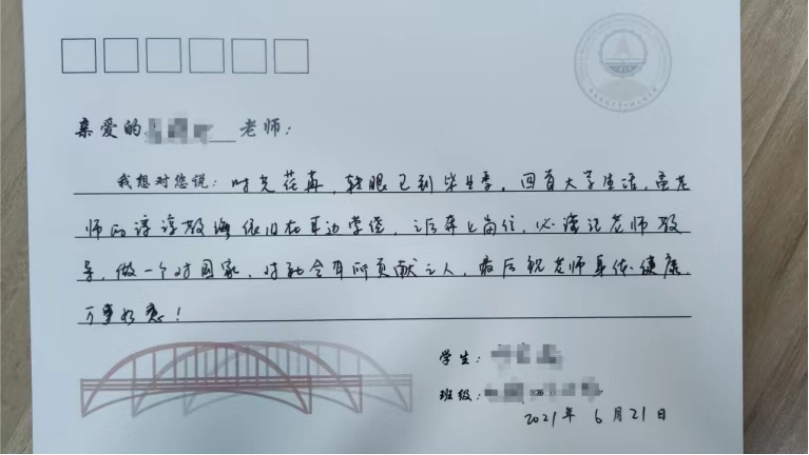 亲爱的 老师：
我想对您说：时光荏苒，转眼已到毕业季，回首大学生活，老
师的谆谆教诲依旧在耳边萦绕，之后奔上岗位，必谨记老师教
导，做一个对国家，对社会有所贡献之人，最后祝老师身体健康，
万事如意！
学生：
班级：
2021年 6月21日